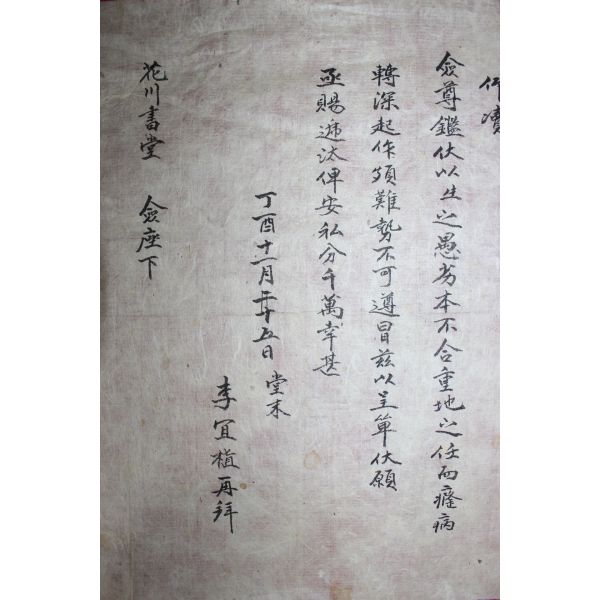 仰瀆
僉尊鑑伏以生之愚劣本不合重地之任而癃病
轉深起作須難勢不可遵冒玆以呈單伏願
亟賜遞汰俾安私分千萬幸甚
丁酉十一月二十五日 堂末
李宜植再拜
花川書堂 僉座下